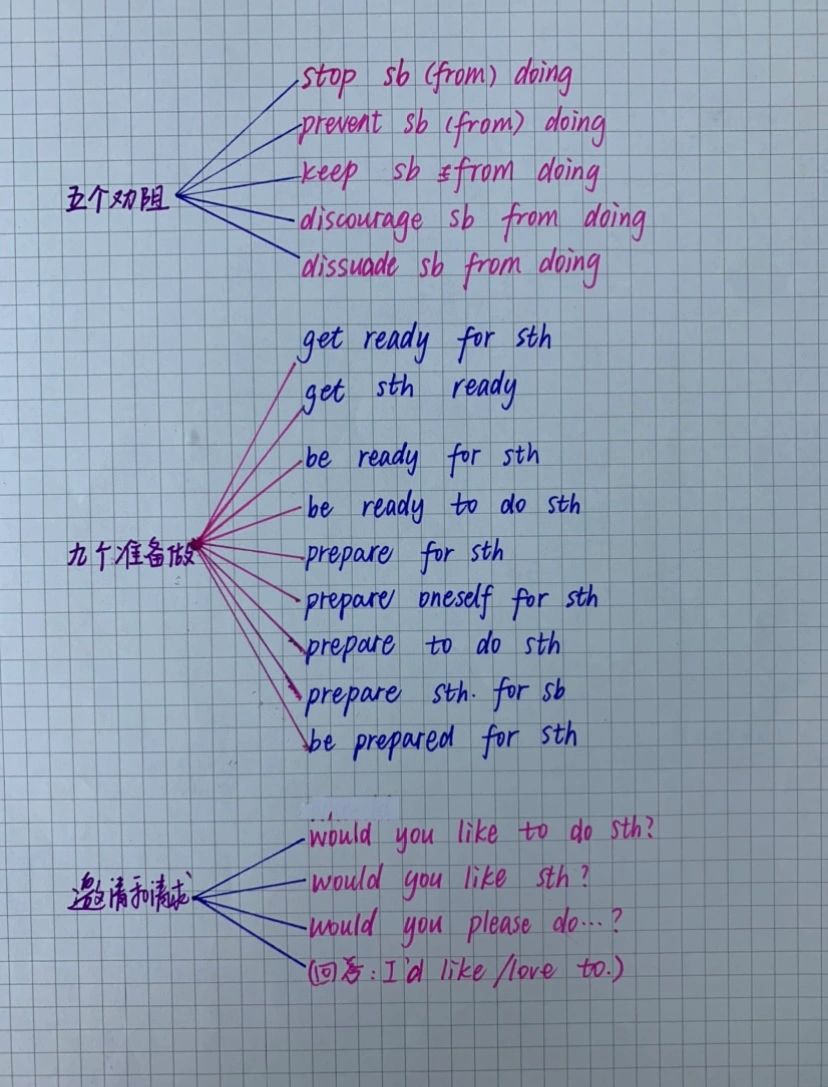 五个劝阻
stop sb (from) doing
prevent sb (from) doing
keep sb from doing
discourage sb from doing
dissuade sb from doing
九个准备做
get ready for sth
get sth ready
be ready for sth
be ready to do sth
prepare for sth
prepare oneself for sth
prepare to do sth
prepare sth. for sb
be prepared for sth
邀请和请求
would you like to do sth?
would you like sth?
would you please do...?
(回答: I'd like /love to.)